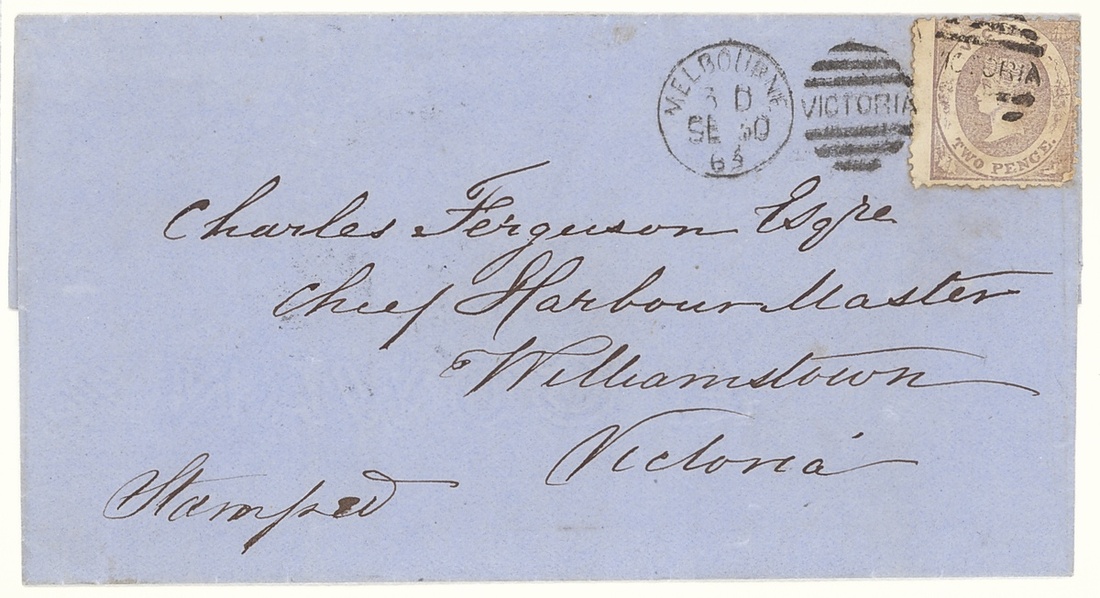 MELBOURNE
3 D
SE 30
63
VICTORIA
VICTORIA
TWO PENCE.
Charles Ferguson Esqre
Chief Harbour Master
Williamstown
Victoria
Stamped